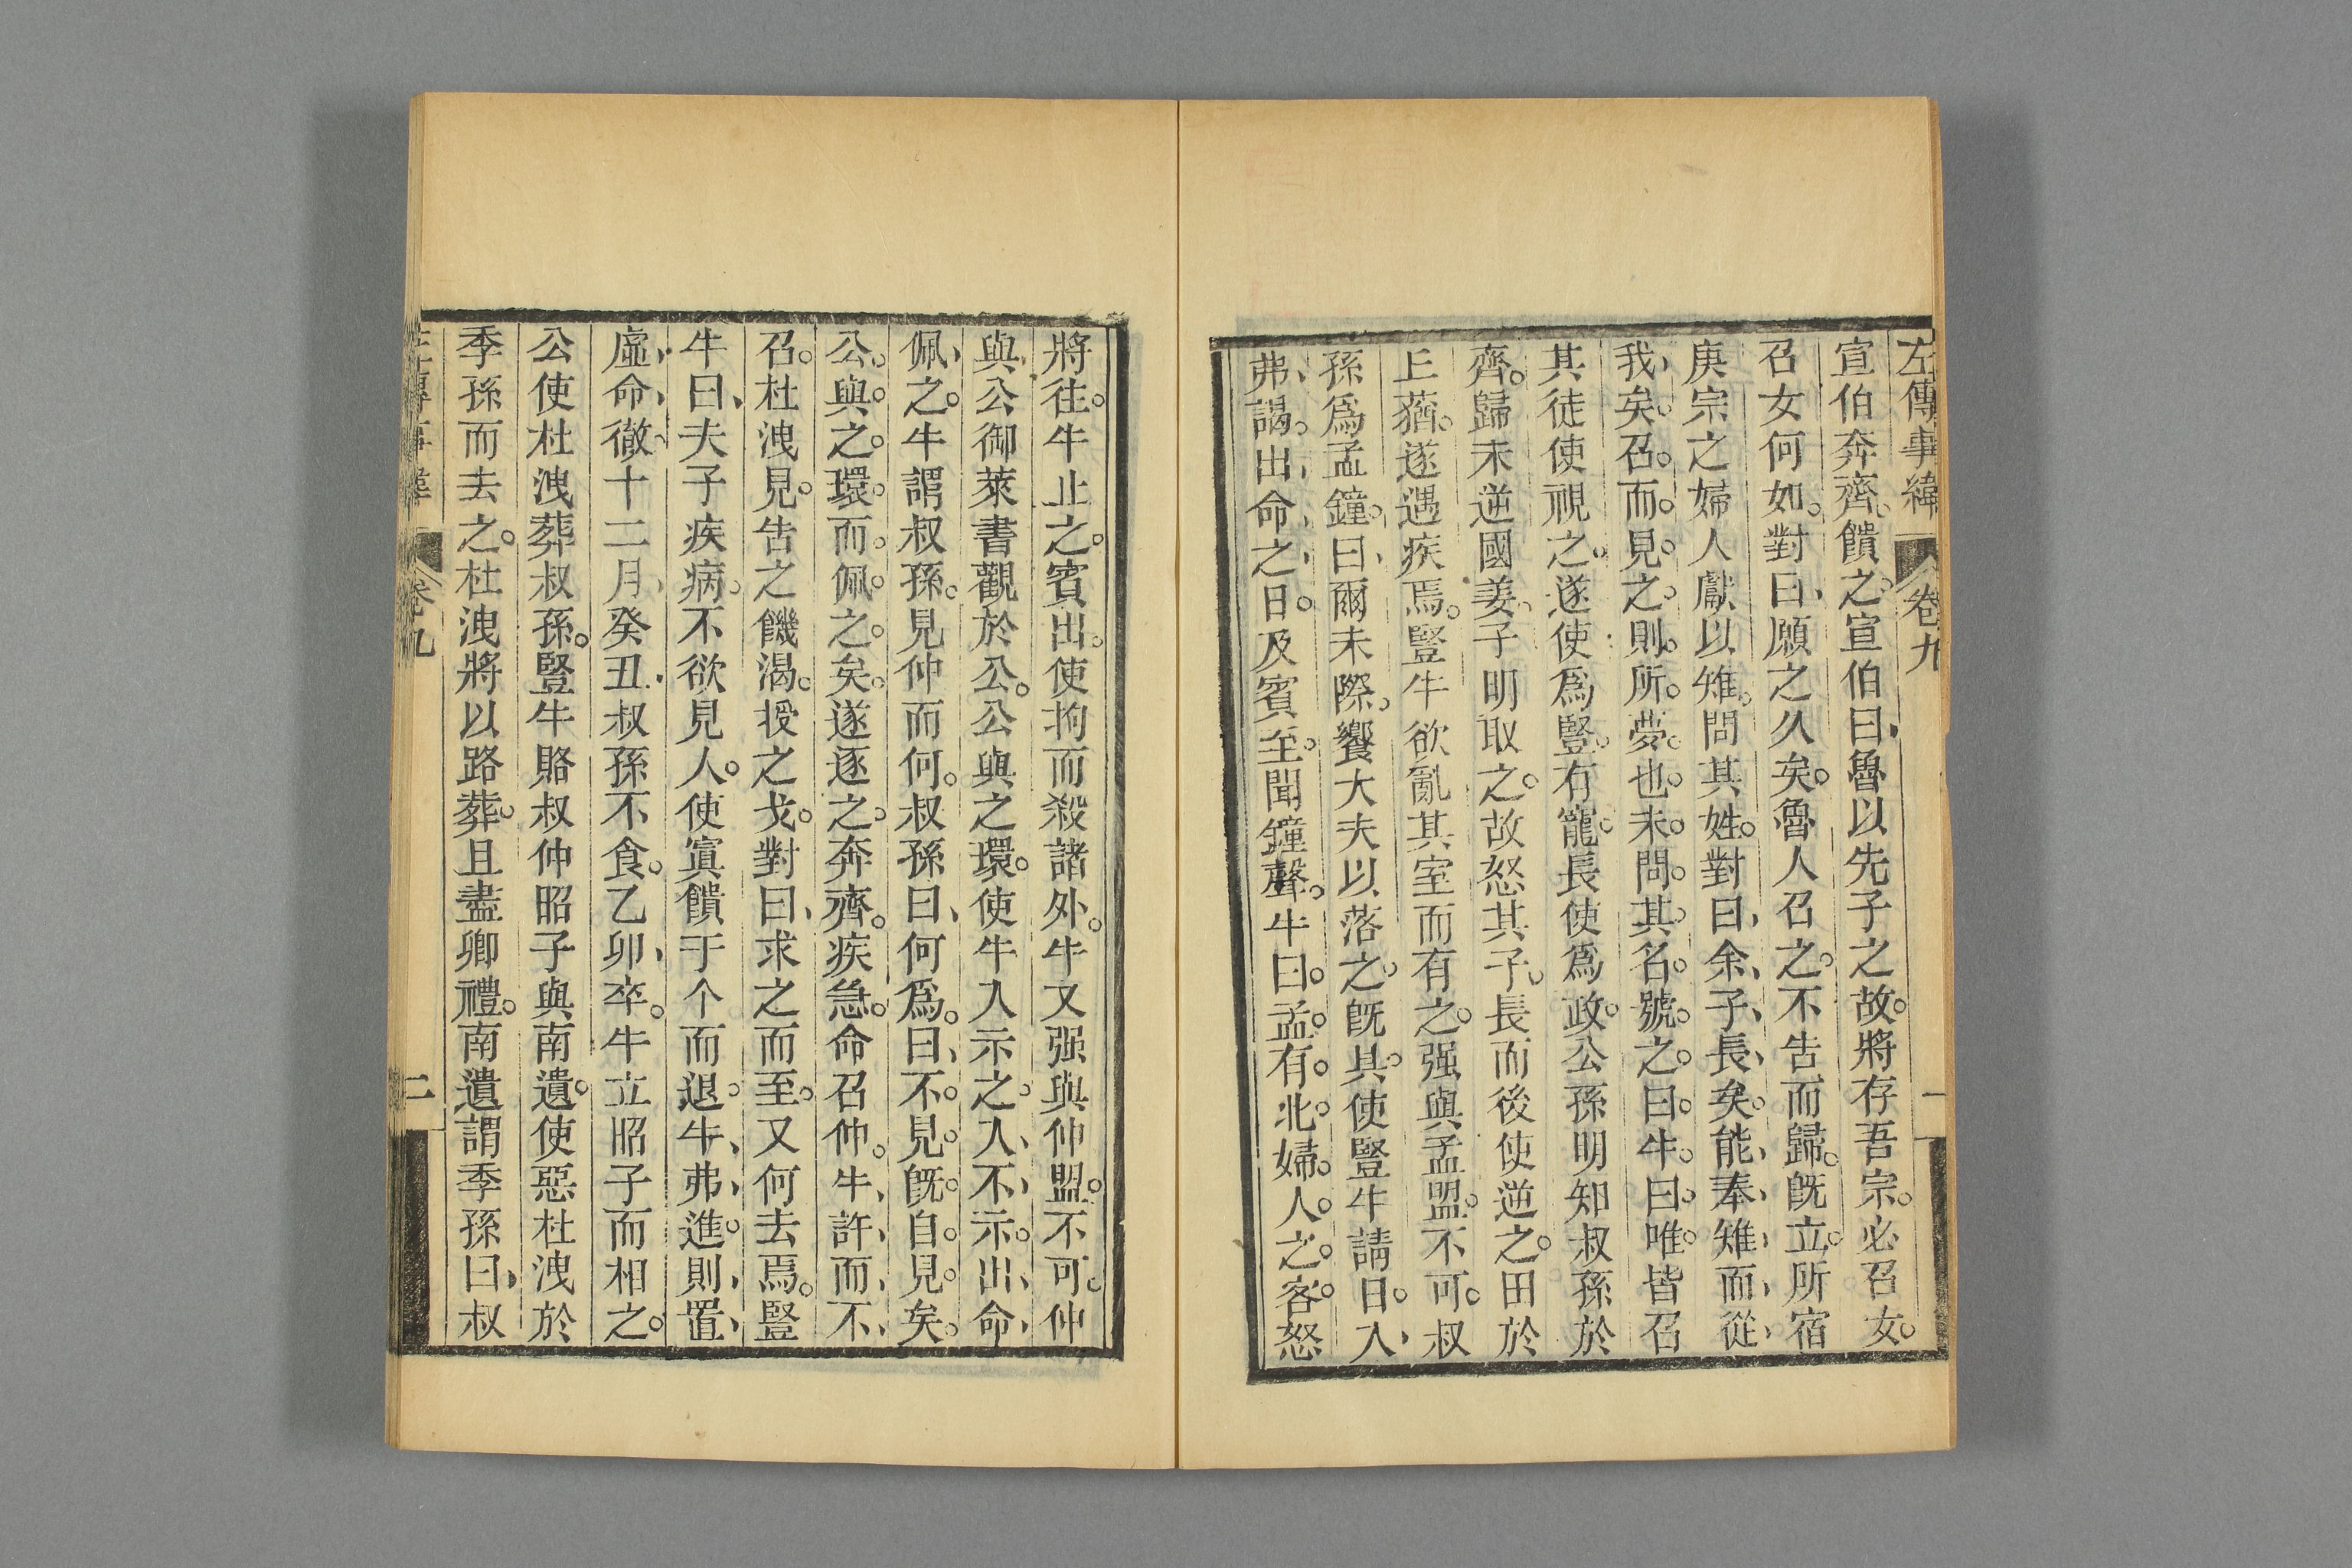 左傳事緯 卷九 一
宣伯奔齊饋之宣伯曰魯以先子之故將存吾宗必召女
召女何如對曰願之久矣魯人召之不告而歸旣立所宿
庚宗之婦人獻以雉問其姓對曰余子長矣能奉雉而從
我矣召而見之則所夢也未問其名號之曰牛曰唯皆召
其徒使視之遂使爲豎有寵長使爲政公孫明知叔孫於
齊歸未逆國姜子明取之故怒其子長而後使逆之田於
丘蕕遂遇疾焉豎牛欲亂其室而有之强與孟盟不可叔
孫爲孟鐘曰爾未際饗大夫以落之旣具使豎牛請日入
弗謁出命之日及賓至聞鐘聲牛曰孟有北婦人之客怒
將往牛止之賓出使拘而殺諸外牛又强與仲盟不可仲
與公御萊書觀於公公與之環使牛入示之入不示出命
佩之牛謂叔孫見仲而何叔孫曰何爲曰不見旣自見矣
公與之環而佩之矣遂逐之奔齊疾急命召仲牛許而不
召杜洩見告之饑渴授之戈對曰求之而至又何去焉豎
牛曰夫子疾病不欲見人使寘饋于个而退牛弗進則置
虛命徹十二月癸丑叔孫不食乙卯卒牛立昭子而相之
公使杜洩葬叔孫豎牛賂叔仲昭子與南遺使惡杜洩於
季孫而去之杜洩將以路葬且盡卿禮南遺謂季孫曰叔
左傳事緯 卷九 二